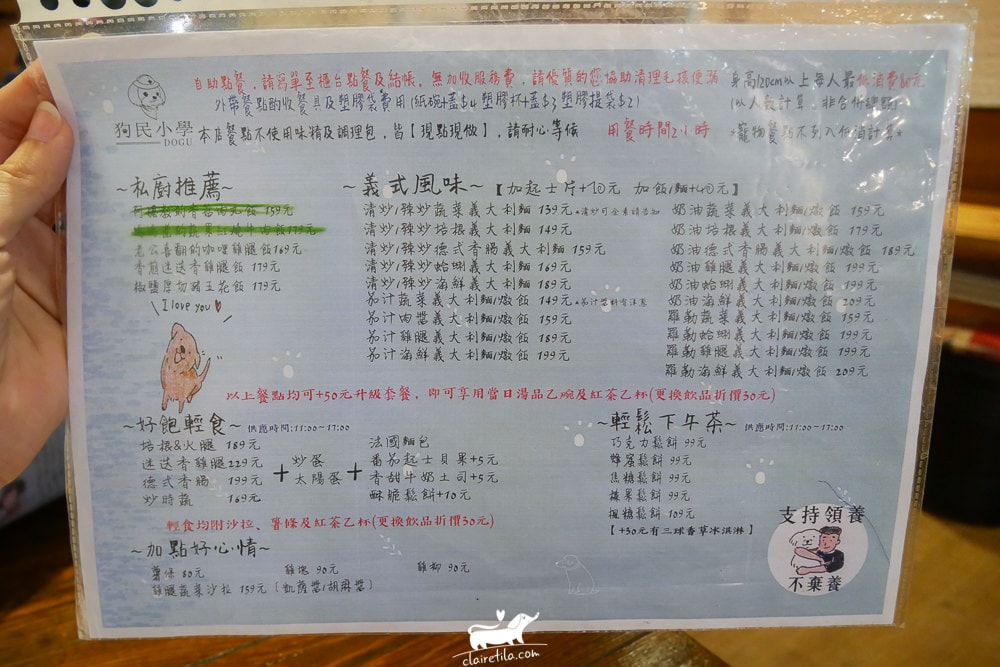 自助點餐，請寫單至櫃台點餐及結帳。無加收服務費，請優質的您協助清理毛孩便溺
身高120cm以上每人最低消費80元
外帶餐點酌收餐具及塑膠袋費用(紙碗+蓋$4 塑膠杯+蓋$3 塑膠提袋$2)
(以人數計算，非合併總點)
狗民小學
DOGU
本店餐點不使用味精及調理包，皆【現點現做】，請耐心等候
用餐時間2小時
*寵物餐點不列入低消計算*
~私廚推薦~
159元
179元
老公喜翻的咖哩雞腿飯169元
香煎迷迭香雞腿飯 179元
椒鹽厚切豬五花飯 179元
I love you
~義式風味~【加起士片+10元 加飯/麵+40元】
清炒/辣炒蔬菜義大利麵 139元 *清炒可全素請告知
清炒/辣炒培根義大利麵 149元
清炒/辣炒德式香腸義大利麵 159元
清炒/辣炒蛤蜊義大利麵 169元
清炒/辣炒海鮮義大利麵 189元
茄汁蔬菜義大利麵/燉飯 149元
茄汁肉醬義大利麵/燉飯 159元
茄汁雞腿義大利麵/燉飯 189元
茄汁海鮮義大利麵/燉飯 199元
奶油蔬菜義大利麵/燉飯 159元
奶油培根義大利麵/燉飯 179元
奶油德式香腸義大利麵/燉飯 189元
奶油雞腿義大利麵/燉飯 199元
奶油蛤蜊義大利麵/燉飯 199元
奶油海鮮義大利麵/燉飯 209元
羅勒蔬菜義大利麵/燉飯 159元
羅勒蛤蜊義大利麵/燉飯 199元
羅勒雞腿義大利麵/燉飯 199元
羅勒海鮮義大利麵/燉飯 209元
以上餐點均可+50元升級套餐，即可享用當日湯品乙碗及紅茶乙杯(更換飲品折價30元)
~好飽輕食~ 供應時間:11:00~17:00
培根&火腿 189元
迷迭香雞腿 229元
德式香腸 199元
炒時蔬 169元
+
炒蛋
太陽蛋
+
法國麵包
番茄起士貝果+5元
香甜牛奶土司+5元
酥脆鬆餅+10元
輕食均附沙拉、薯條及紅茶乙杯(更換飲品折價30元)
~輕鬆下午茶~ 供應時間:11:00~17:00
巧克力鬆餅 99元
蜂蜜鬆餅 99元
焦糖鬆餅 99元
榛果鬆餅 99元
楓糖鬆餅 109元
【+30元有三球香草冰淇淋】
~加點好心情~
薯條 80元
雞塊 90元
雞柳 90元
雞腿蔬菜沙拉 159元 (凱薩醬/胡麻醬)
支持領養
不棄養
clairetila.com